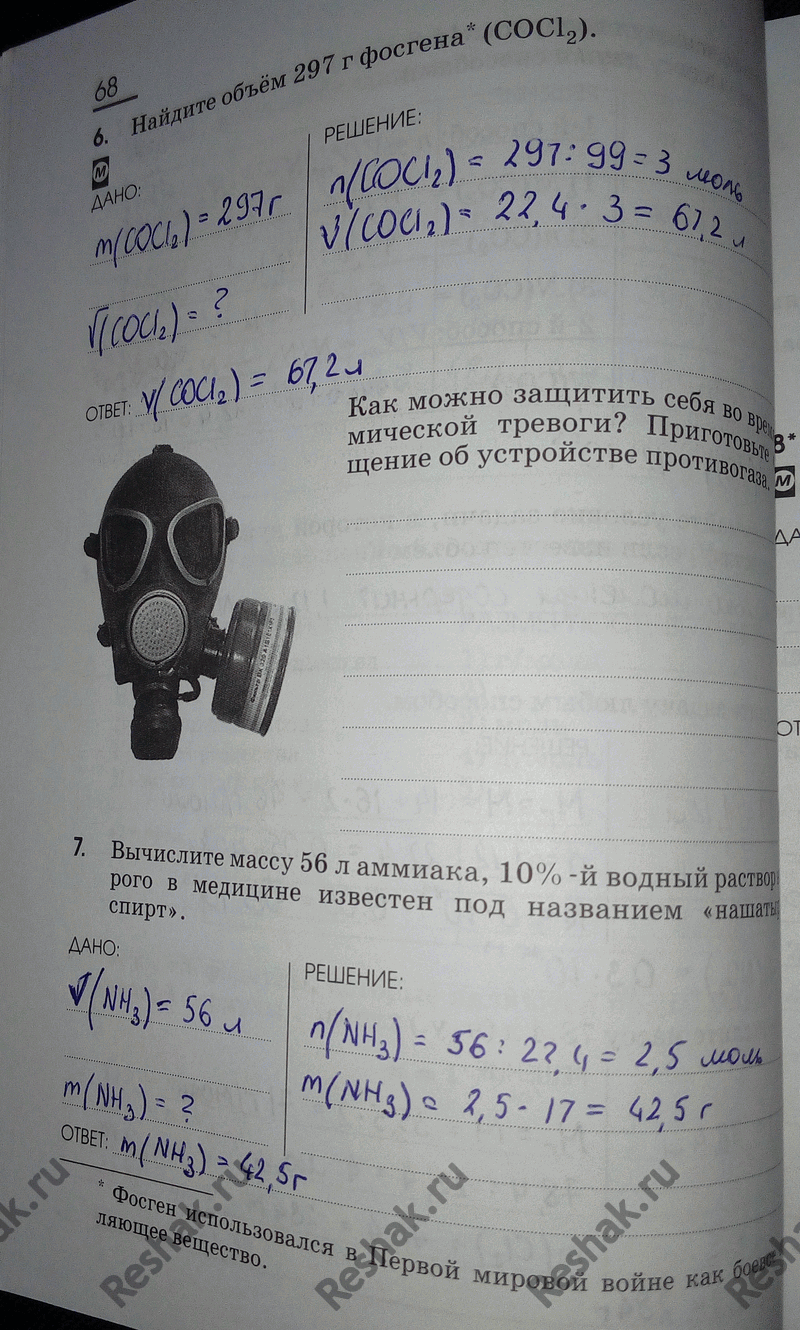 68
6. Найдите объём 297 г фосгена* (COCl₂).
М
ДАНО:
m(COCl₂) = 297 г
V(COCl₂) = ?
РЕШЕНИЕ:
n(COCl₂) = 297 : 99 = 3 моль
V(COCl₂) = 22,4 · 3 = 67,2 л
ОТВЕТ: V(COCl₂) = 67,2 л
Как можно защитить себя во врем
мической тревоги? Приготовьте
щение об устройстве противогаза.
7. Вычислите массу 56 л аммиака, 10% -й водный раствор
рого в медицине известен под названием «нашаты
спирт».
ДАНО:
V(NH₃) = 56 л
m(NH₃) = ?
РЕШЕНИЕ:
n(NH₃) = 56 : 22,4 = 2,5 моль
m(NH₃) = 2,5 · 17 = 42,5 г
ОТВЕТ: m(NH₃) = 42,5 г
* Фосген использовался в Первой мировой войне как боево
ляющее вещество.
8*
М
ДА
ОТ
Reshak.ru
Reshak.ru
Reshak.ru
Reshak.ru